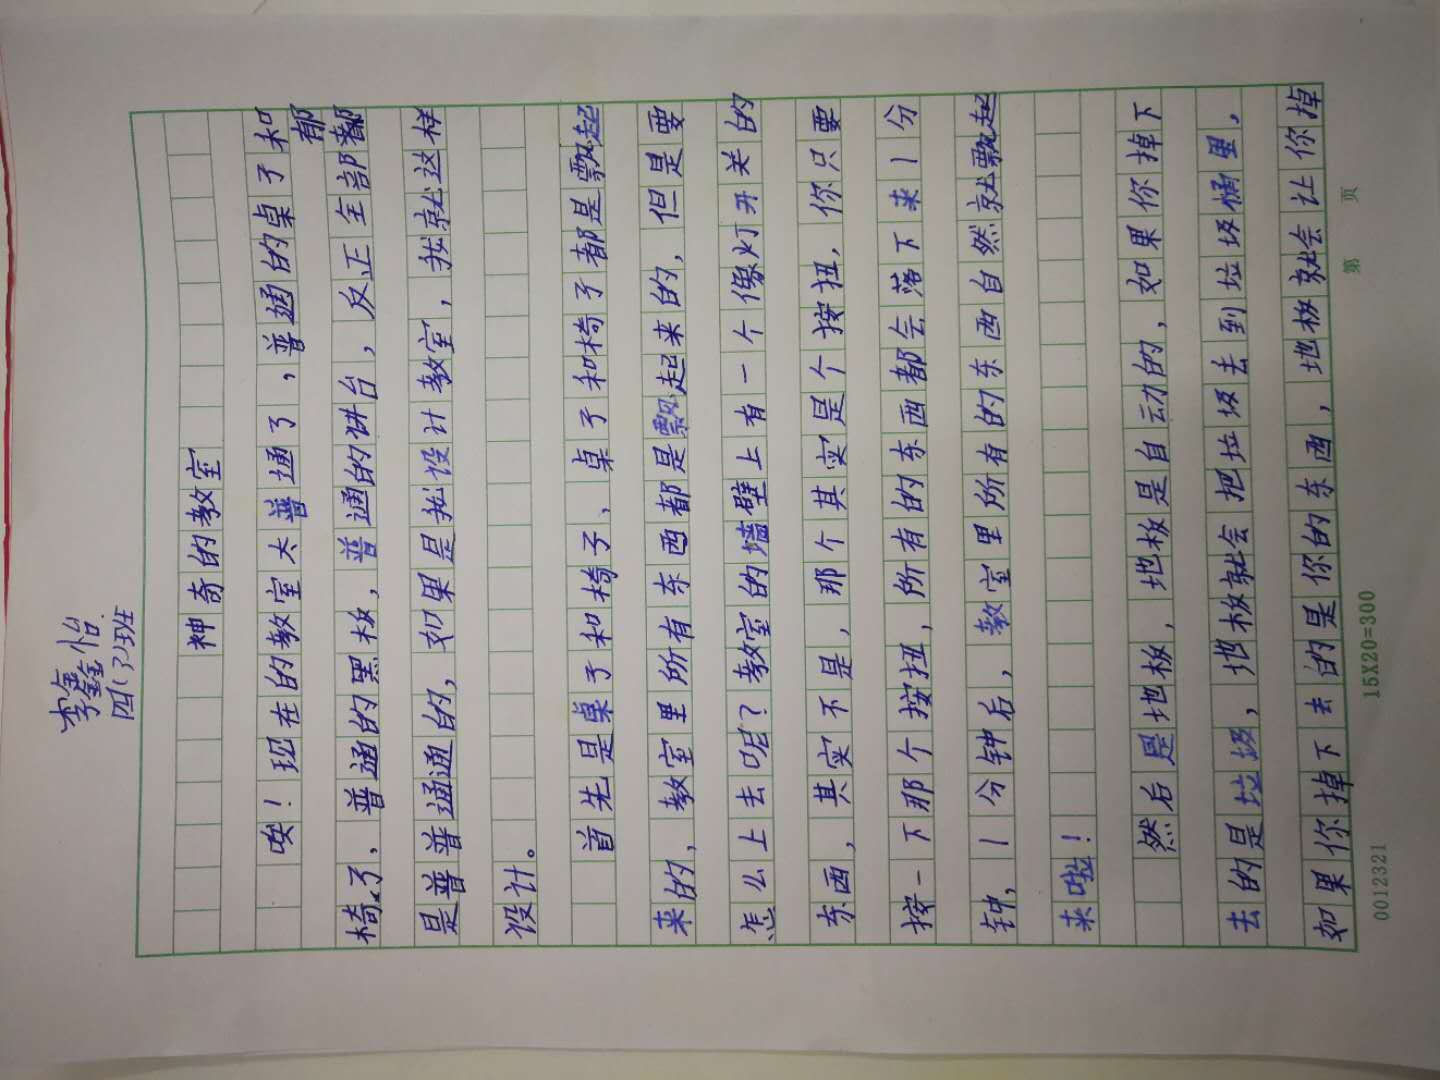 李鑫怡
四(7)班
神奇的教室
唉！现在的教室太普通了，普通的桌子和
椅子，普通的黑板，普通的讲台，反正全部都
是普普通通的，如果是我设计教室，我就这样
设计。
首先是桌子和椅子、桌子和椅子都是飘起
来的，教室里所有东西都是飘起来的，但是要
怎么上去呢？教室的墙壁上有一个像灯开关的
东西，其实不是，那个其实是个按扭，你只要
按一下那个按扭，所有的东西都会落下来1分
钟，1分钟后，教室里所有的东西自然就飘起
来啦！
然后是地板，地板是自动的，如果你掉下
去的是垃圾，地板就会把垃圾去到垃圾桶里，
如果你掉下去的是你的东西，地板就会让你掉
0012321
15X20=300
第 页